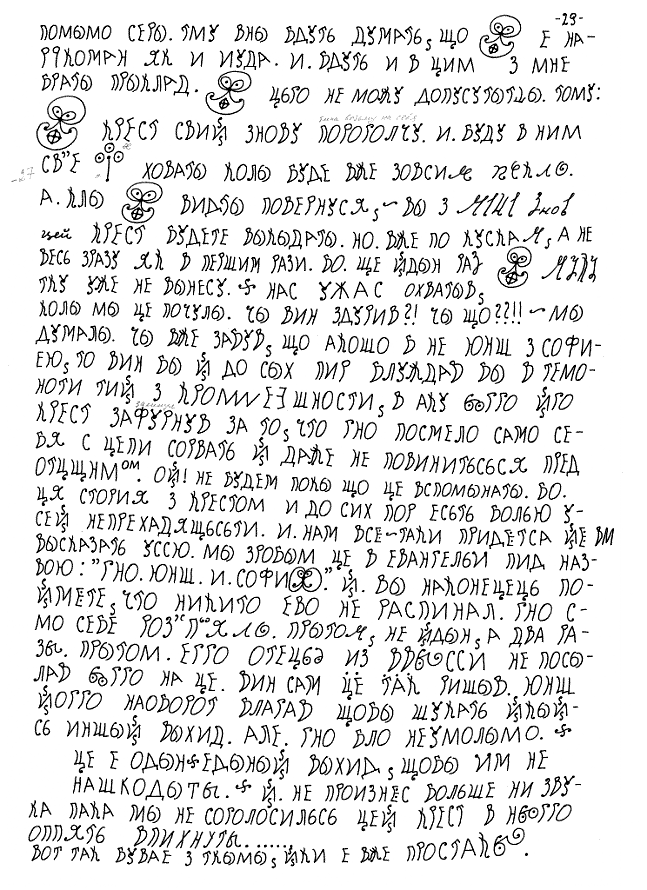 -29-
ПОМЫМО СЕРЫ. ТМУ ВНЫ ВДУТЬ ДУМАТЬ, ЩО Е НА-
РРКОМАН ЯК И ИУДА. И. ВДУТЬ И В ЦИМ З МНЕ
БРАТЫ ПРЫКЛАД. ЦЬГО НЕ МОЖУ ДОПУСУТЫТЦЫ. ТОМУ:
КРЕСТ СВИЙ ЗНОВУ ПОРОГОЛЧУ. И. БУДУ В НИМ
СВ"Е ХОВАТЫ КОЛЫ БУДЕ ВЖЕ ЗОВСИМ ПЕКЛО.
А. КЛЫ ВИДТЫ ПОВЕРНУСЯ, ~ ВЫ З ЗНОВ
ЦЕЙ КРЕСТ БУДЕТЕ ВЫКЫДАТЫ. НО. ВЖЕ ПО КУСКАМ, А НЕ
ВЕСЬ ЗРАЗУ ЯК В ПЕРШИМ РАЗИ. БО. ЩЕ ЙДЫН РАЗ
ТКУ УЖЕ НЕ ВЫНЕСУ. НАС УЖАС ОХВАТЫВ,
КОЛЫ МЫ ЦЕ ПОЧУЛЫ. ЧЫ ВИН ЗДУРИВ?! ЧЫ ЩО??!! ~ МЫ
ДУМАЛЫ. ЧЫ ВЖЕ ЗАБУВ, ЩО АКОЩО В НЕ ЮНШ З СОФИ-
ЕЮ, ТО ВИН БЫ Й ДО СЫХ ПИР БЛУЖДАВ БЫ В ТЕМО-
НОТИ ТИЙ З ШНОСТИ, В АКУ ЙГО
КРЕСТ ЗАФУРНУВ ЗА ТО, ЧТО ГНО ПОСМЕЛО САМО СЕ-
БЯ С ЦЕПИ СОРВАТЬ Й ДАЖЕ НЕ ПОВИНИТЬСЬСЯ ПРЕД
ОТЦЩНМ ОМ. ОЙ! НЕ БУДЕМ ПОКЫ ЩО ЦЕ ВСПОМЫНАТЫ. БО.
ЦЯ СТОРИЯ З КРЕСТОМ И ДО СИХ ПОР ЕСЬТЬ БОЛЬЮ У-
СЕЙ НЕПРЕХАДЯЩЬСЬТИ. И. НАМ ВСЕ~ТАКИ ПРИДЕТСА ЙЕ ВМ
ВЫСКАЗАТЬ УССЮ. МЫ ЗРОБЫМ ЦЕ В ЕВАНГЕЛЬИ ПИД НАЗ-
ВОЮ: "ГНО. ЮНШ. И. СОФИЯ". Й. ВЫ НАКОНЕЦЕЦЬ ПО-
ЙМЕТЕ, ЧТО НИКИТО ЕВО НЕ РАСПИНАЛ. ГНО С-
МО СЕБЕ РОЗ"П"ЯЛО. ПРЫТОМ, НЕ ЙДЫН, А ДВА РА-
ЗЫ. ПРЫТОМ. ЕГГО ОТЕЦЬ ИЗ НЕ ПОСЫ-
ЛАВ НА ЦЕ. ВИН САМ ЦЕ ТАК РИШЫВ. ЮНШ
ЙОГГО НАОБОРОТ БЛАГАВ ЩОБЫ ШУКАТЬ ЙКЫЙ-
СЬ ИНШЫЙ ВЫХИД. АЛЕ. ГНО БЛО НЕУМОЛЫМО.
ЦЕ Е ОДЫН ЕДЫНЫЙ ВЫХИД, ЩОБЫ ИМ НЕ
НАШКОДЫТЫ. Й. НЕ ПРОИЗНЁС БОЛЬШЕ НИ ЗВУ-
КА ПАКА МЫ НЕ СОГОЛОСИЛЬСЬ ЦЕЙ КРЕСТ В НЬОГГО
ОППЯТЬ ВПИХНУТЫ. ......
ВОТ ТАК БУВАЕ З ТКЫМЫ, ЙКИ Е ВЖЕ